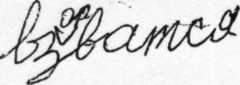 взорватся